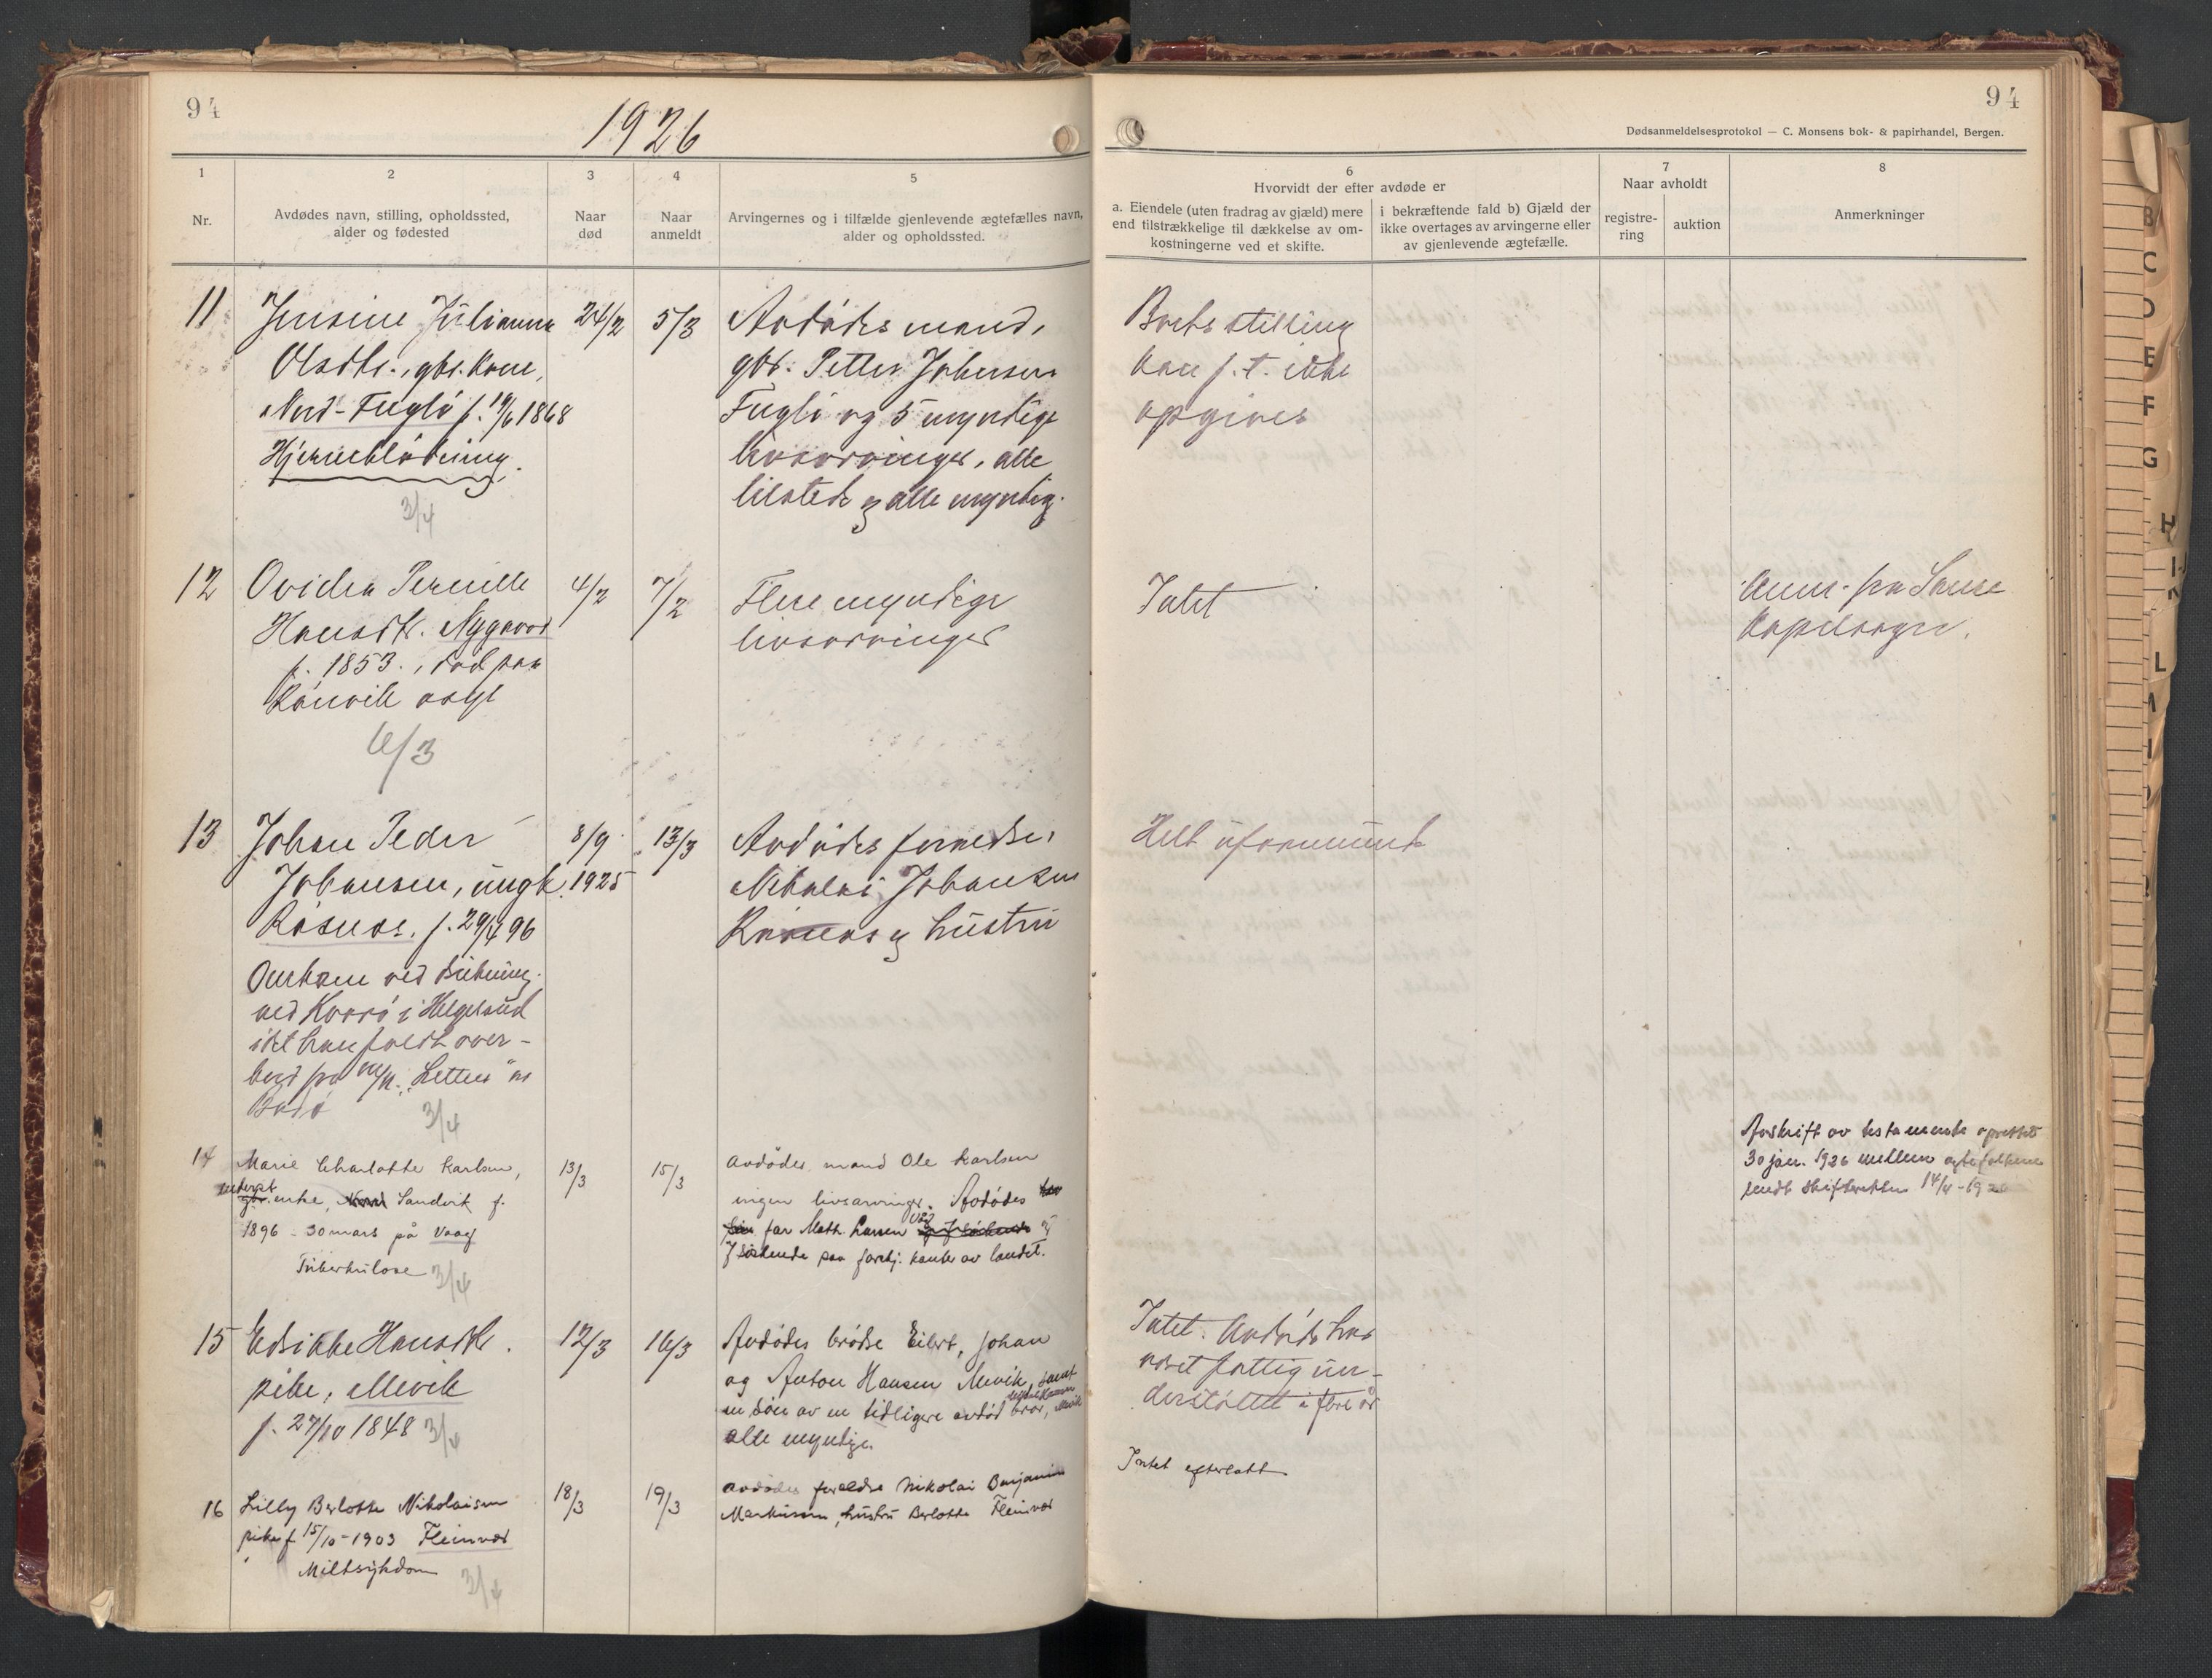 94
1926
94
Dødsanmeldelsesprotokol — C. Monsens bok- & papirhandel, Bergen.
1
2
3
4
5
6
7
8
Nr.
Avdødes navn, stilling, opholdssted,
alder og fødested
Naar
død
Naar
anmeldt
Arvingernes og i tilfælde gjenlevende ægtefælles navn,
alder og opholdssted.
Hvorvidt der efter avdøde er
a. Eiendele (uten fradrag av gjæld) mere
end tilstrækkelige til dækkelse av om-
kostningerne ved et skifte.
i bekræftende fald b) Gjæld der
ikke overtages av arvingerne eller
av gjenlevende ægtefælle.
Naar avholdt
registre-
ring
auktion
Anmerkninger
11
Jensine Julianna
Olsdtr., gbr. kone,
Nord-Fuglø f. 19/6 1868
Hjerneblødning.
3/4
24/2
5/3
Avdødes mand,
gbr. Petter Johensen
Fuglø og 5 myndige
livsarvinger, alle
tilstede og alle myndig.
Boets stilling
kan f. t. ikke
opgives
12
Ovidia Pernille
Hansdtr. Nygaard
f. 1853., død paa
Rønvik asyl
6/3
4/2
7/2
Flere myndige
livsarvinger
Intet
Anm. fra
13
Johan Peder
Johansen, ungk.
Røsnes. f. 29/4 96
Omkom ved drukning
ved Kvarø i Helgeland
idet han faldt over-
bord fra m/k. "
Bodø
3/4
8/9
1925
13/3
Avdødes forældre,
Nikolai Johansen
Røsnes og hustru
Helt uformuende
14
Marie Charlotte Karlsen,
gbr. enke, Nord Sandvik f.
1896 - 30 mars på Vaag
Tuberkulose
3/4
13/3
15/3
Avdødes mand Ole Karlsen
ingen livsarvinger. Avdødes
far Math. Larsen og
7 søskende paa forskj. kanter av landet.
Avskrift av testamente oprettet
30 jan. 1926 mellem egtefolkene
sendt skifteretten 14/4 - 1926
15
Edvikke Hansdtr.
pike, Mevik
f. 27/10 1848
3/4
12/3
16/3
Avdødes brødre Eilert, Johan
og Anton Hansen Mevik, samt
en søn av en tidligere avdød bror, Mevik
alle myndige.
Intet. Avdøde har
vært fattigun-
derstøttet i flere år
16
Lilly Berlotte Nikolaisen
pike f 15/10 - 1903 Fleinvær
Miltsykdom
3/4
18/3
19/3
Avdødes foreldre Nikolai Benjamin
Markussen, hustru Berlotte Fleinvær
Intet efterlatt
B
C
D
E
F
G
H
I-J
K
L
M